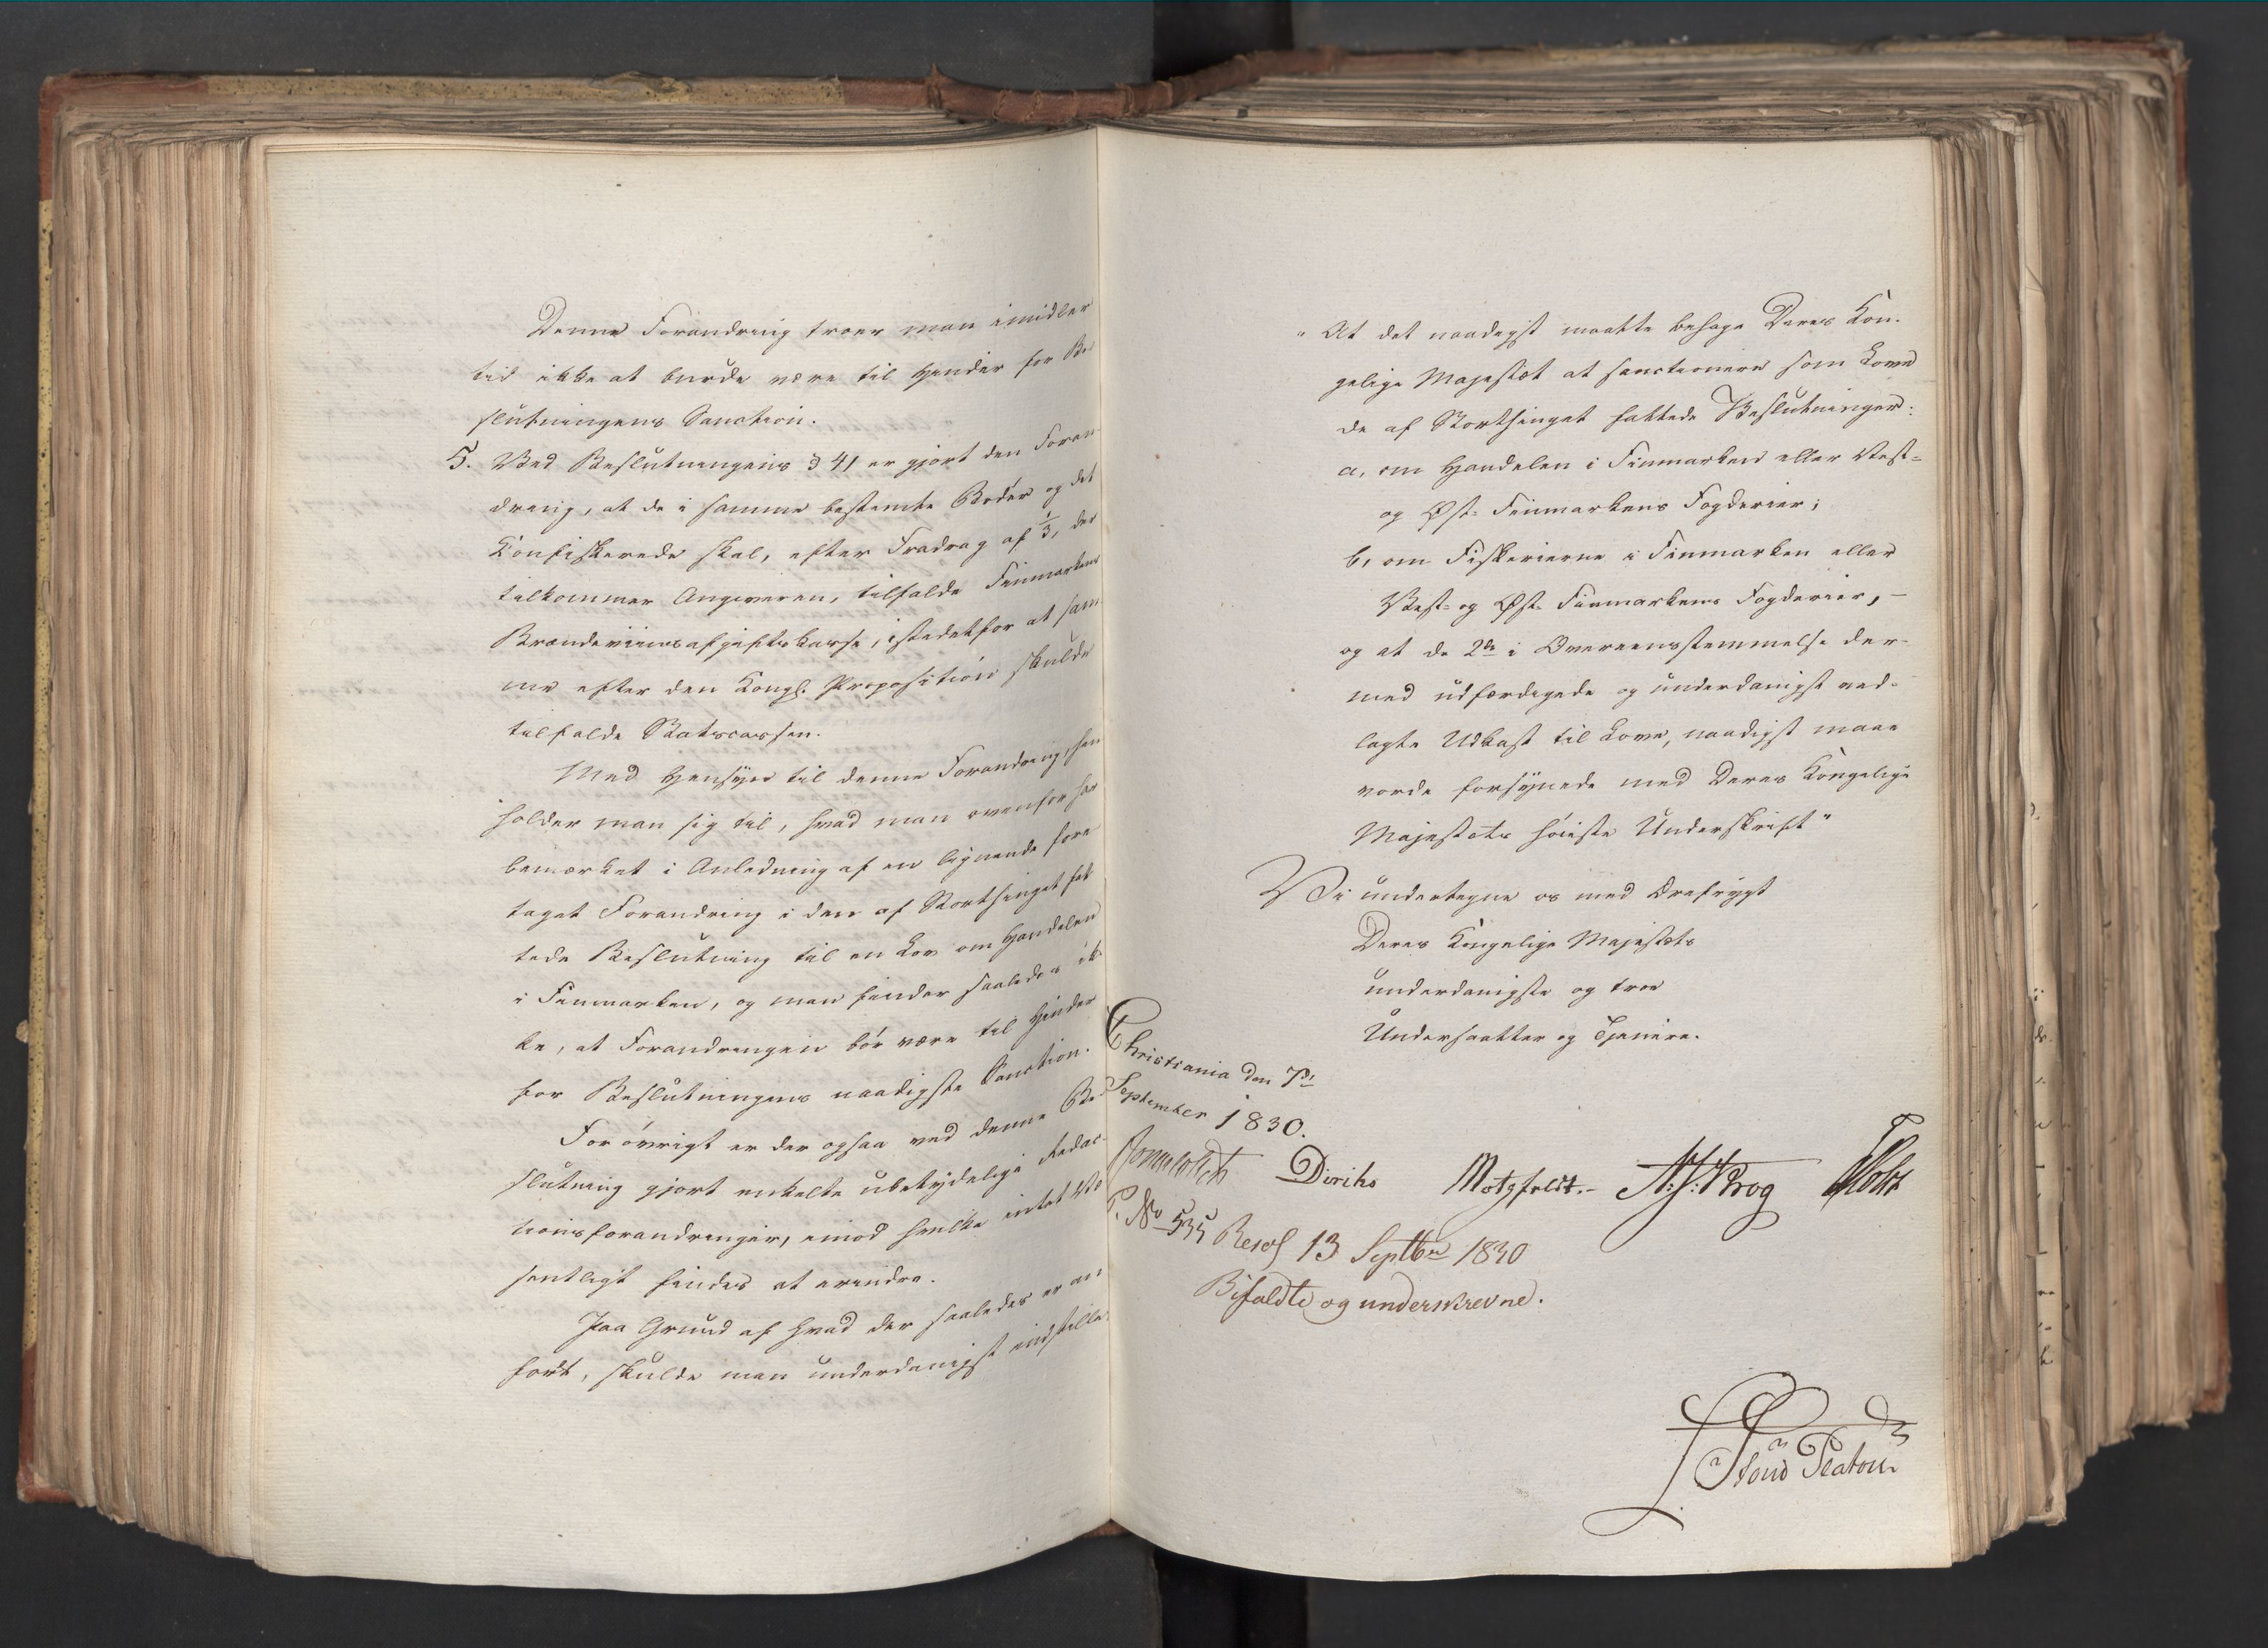 Denne Forandring troer man imidler
tid ikke at burde være til Hinder for Be
slutningens Sanction.
5. Ved Beslutningens § 41 er gjort den Foran
dring, at de i samme bestemte Bøder og det
Confiskerede skal, efter Fradrag af 1/3, der
tilkommer Angiveren, tilfalde Finmarkens
Brændeviinsafgiftskasse, istedetfor at sam
me efter den Kongl. Proposition skulde
tilfalde Statscassen.
Med Hensyn til denne Forandring, hen
holder man sig til, hvad man ovenfor har
bemærket i Anledning af en lignende fore
taget Forandring i den af Storthinget fat
tede Beslutning til en Lov om Handelen
i Finmarken, og man finder saaledes ik
ke, at Forandringen bør være til Hinder
for Beslutningens naadigste Sanction.
For øvrigt er der ogsaa ved denne Be
slutning gjort enkelte ubetydelige Redac-
tionsforandringer, imod hvilke intet Væ
sentligt findes at erindre.
Paa Grund af hvad der saaledes er an
ført, skulde man underdanigst indstille:
" At det naadigst maatte behage Deres Kon-
gelige Majestæt at sanctionere som Love
de af Storthinget fattede Beslutninger:
a, om Handelen i Finmarken eller Vest-
og Øst- Finmarkens Fogderier;
b, om Fiskerierne i Finmarken eller
Vest- og Øst- Finmarkens Fogderier, –
og at de 2de i Overeensstemmelse der-
med udfærdigede og underdanigst ved-
lagte Udkast til Love, naadigst maae
vorde forsynede med Deres Kongelige
Majestæts høieste Underskrift"
Vi undertegne os med Ærefrygt
Deres Kongelige Majestæts
underdanigste og troe
Undersaatter og Tjenere.
Christiania den 7de
September 1830.
Diriks Motzfeldt. Krog
P. No 535 Resol 13 Septbr 1830
Bifaldte og underskrevne.